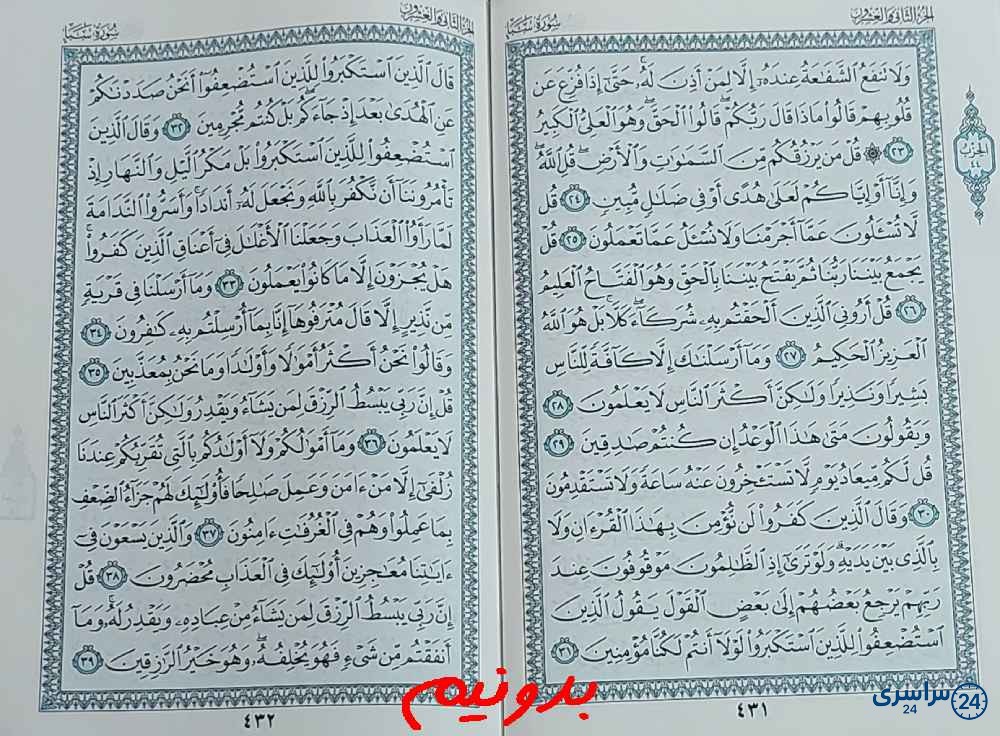 الجزء الثاني والعشرون
سورة سبإ
ولا تنفع الشفاعة عنده إلا لمن أذن له حتى إذا فزع عن
قلوبهم قالوا ماذا قال ربكم قالوا الحق وهو العلي الكبير
٢٣ ۞ قل من يرزقكم من السموات والأرض قل الله
وإنا أو إياكم لعلى هدى أو في ضلل مبين ٢٤ قل
لا تسئلون عما أجرمنا ولا نسئل عما تعملون ٢٥ قل
يجمع بيننا ربنا ثم يفتح بيننا بالحق وهو الفتاح العليم
٢٦ قل أروني الذين ألحقتم به شركاء كلا بل هو الله
العزيز الحكيم ٢٧ وما أرسلنك إلا كافة للناس
بشيرا ونذيرا ولكن أكثر الناس لا يعلمون ٢٨
ويقولون متى هذا الوعد إن كنتم صدقين ٢٩
قل لكم ميعاد يوم لا تستئخرون عنه ساعة ولا تستقدمون
٣٠ وقال الذين كفروا لن نؤمن بهذا القرءان ولا
بالذي بين يديه ولو ترى إذ الظلمون موقوفون عند
ربهم يرجع بعضهم إلى بعض القول يقول الذين
استضعفوا للذين استكبروا لولا أنتم لكنا مؤمنين ٣١
٤٣١
الحزب
٤٤
الجزء الثاني والعشرون
سورة سبإ
قال الذين استكبروا للذين استضعفوا أنحن صددنكم
عن الهدى بعد إذ جاءكم بل كنتم مجرمين ٣٢ وقال الذين
استضعفوا للذين استكبروا بل مكر اليل والنهار إذ
تأمروننا أن نكفر بالله ونجعل له أندادا وأسروا الندامة
لما رأوا العذاب وجعلنا الأغلل في أعناق الذين كفروا
هل يجزون إلا ما كانوا يعملون ٣٣ وما أرسلنا في قرية
من نذير إلا قال مترفوها إنا بما أرسلتم به كفرون ٣٤
وقالوا نحن أكثر أمولا وأولدا وما نحن بمعذبين ٣٥
قل إن ربي يبسط الرزق لمن يشاء ويقدر ولكن أكثر الناس
لا يعلمون ٣٦ وما أمولكم ولا أولدكم بالتي تقربكم عندنا
زلفى إلا من ءامن وعمل صلحا فأولئك لهم جزاء الضعف
بما عملوا وهم في الغرفت ءامنون ٣٧ والذين يسعون في
ءايتنا معجزين أولئك في العذاب محضرون ٣٨ قل
إن ربي يبسط الرزق لمن يشاء من عباده ويقدر له وما
أنفقتم من شيء فهو يخلفه وهو خير الرزقين ٣٩
٤٣٢
بدونیم
سراسری
24
24